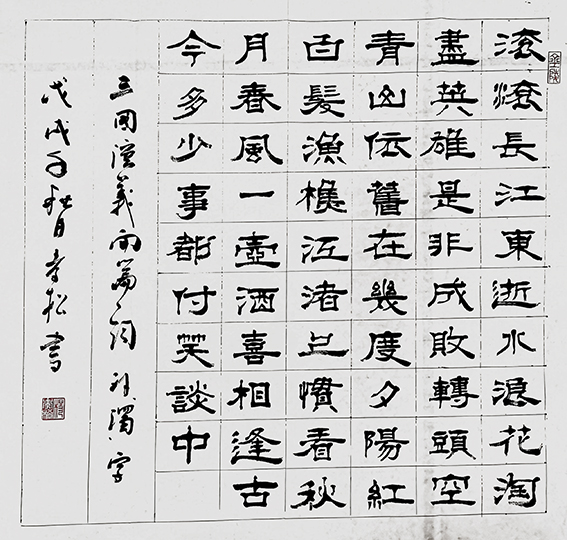 滾滾長江東逝水浪花淘
盡英雄是非成敗轉頭空
青山依舊在幾度夕陽紅
白髮漁樵江渚上慣看秋
月春風一壺酒喜相逢古
今多少事都付笑談中
三國演義開篇詞 濁字
戊戌年秋月 松書